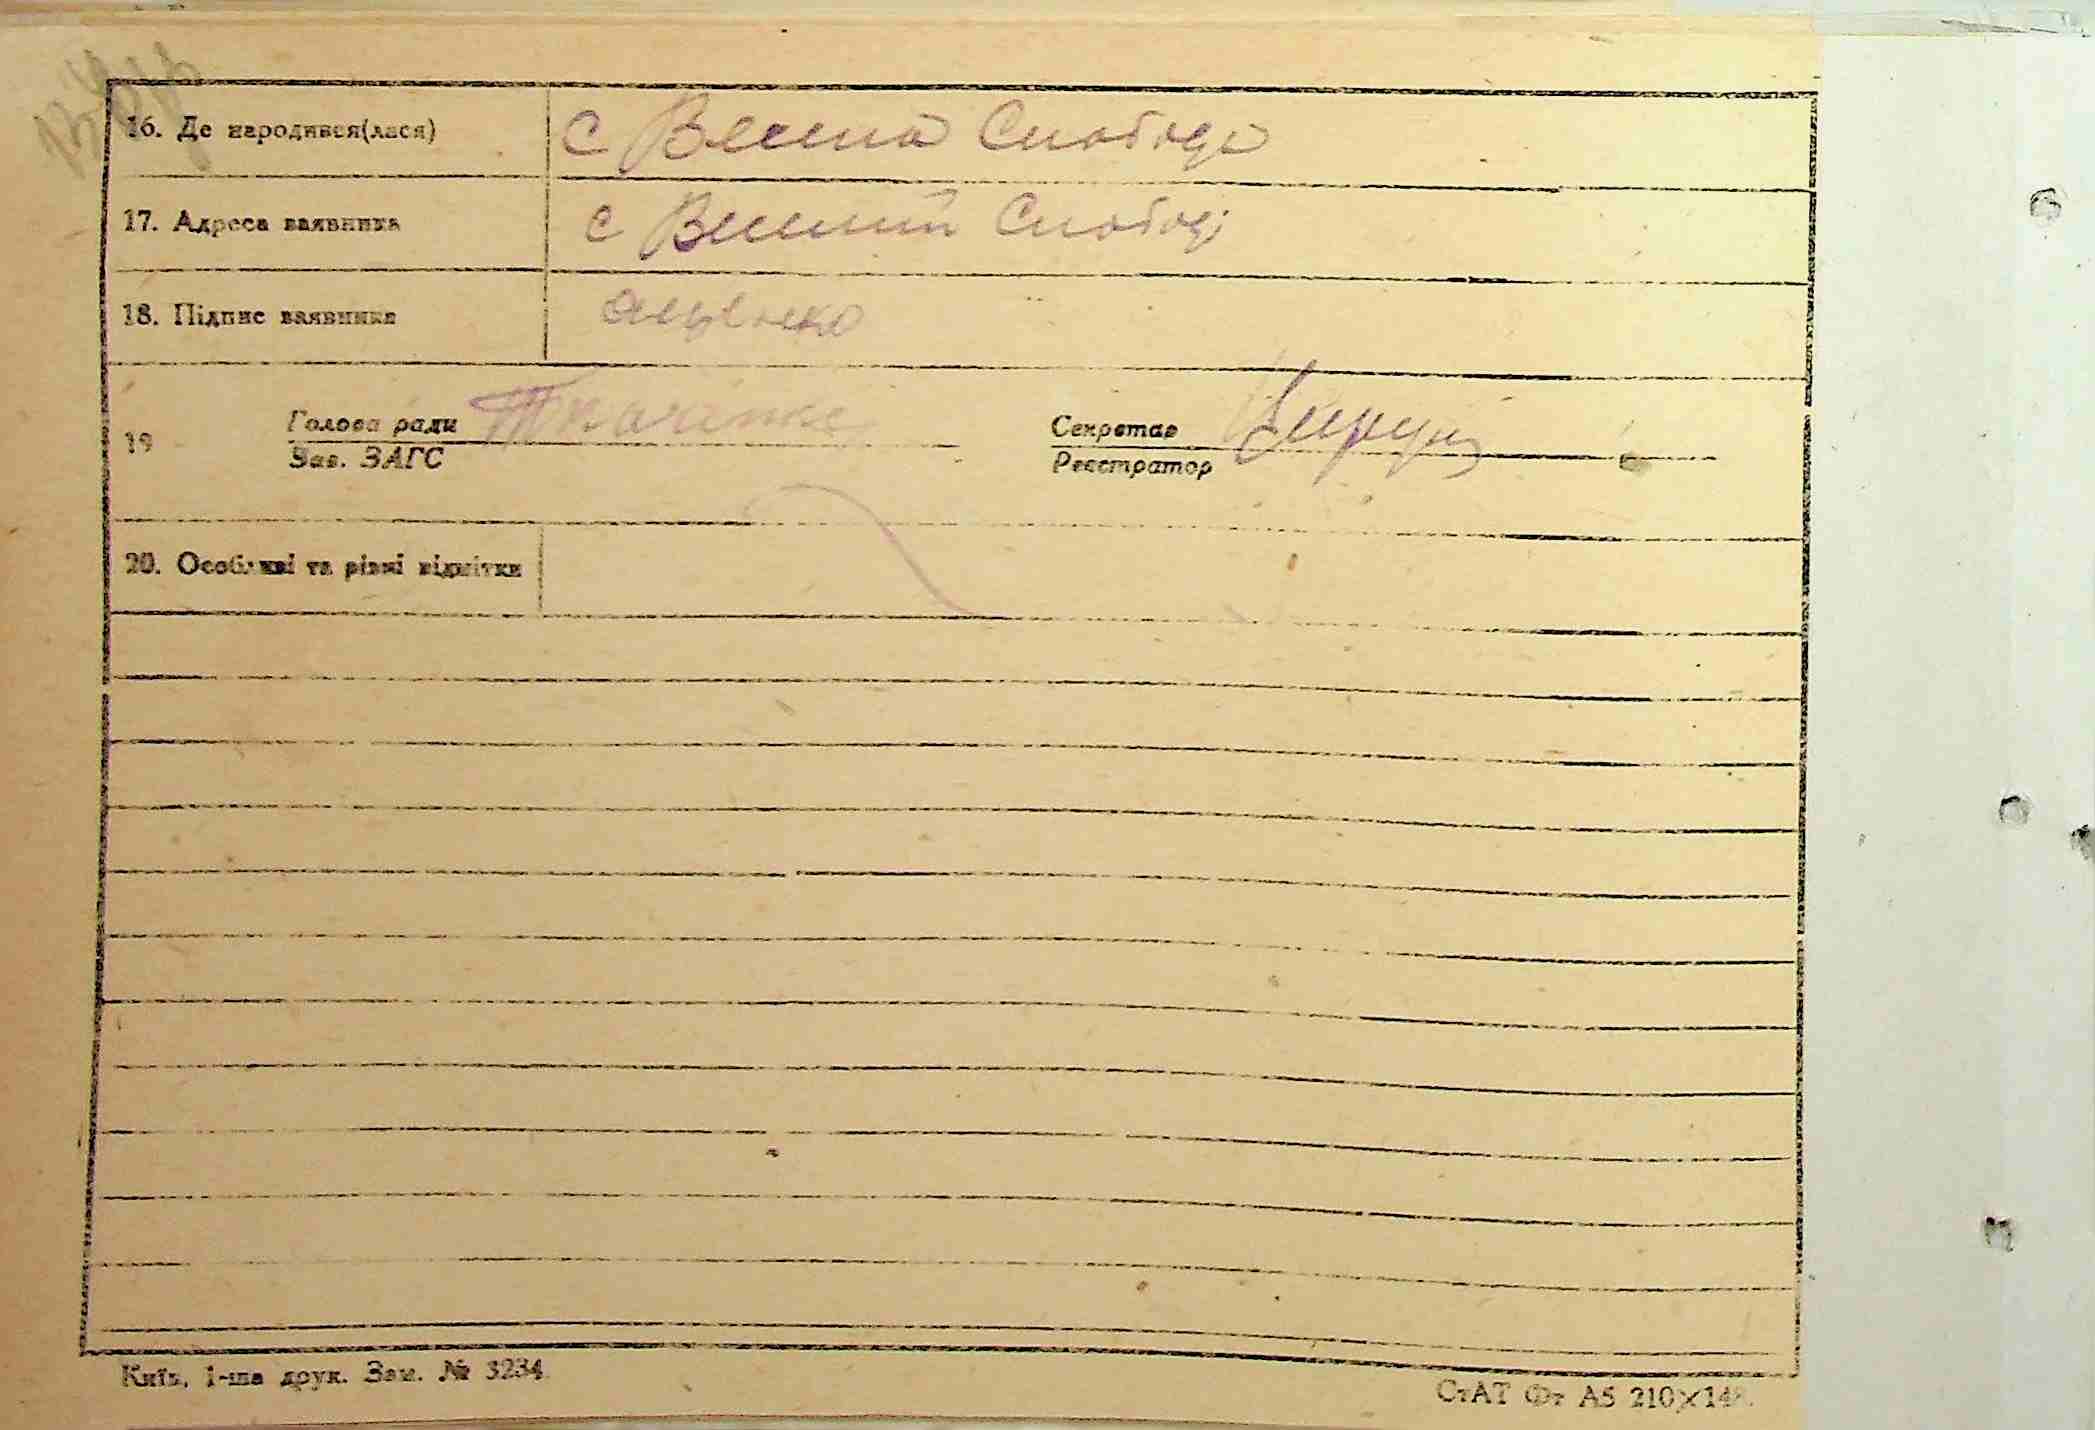 16. Де народився(лася) с Велика Слобода
17. Адреса заявника с Великій Слободі
18. Підпис заявника
19 Голова ради Ткаченко Секретар
Зав. ЗАГС Реєстратор
20. Особливі та різні відмітки
Київ, 1-ша друк. Зам. № 3234.
СтАТ Фт А5 210×148.